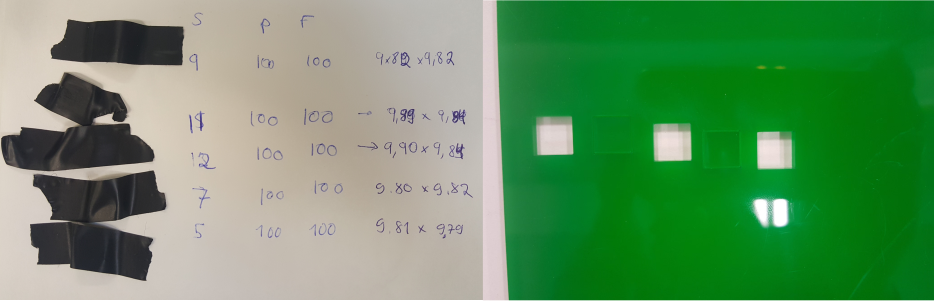 S P F
9 100 100 9,82 x 9,82
11 100 100 → 9,89 x 9,84
12 100 100 → 9,90 x 9,84
7 100 100 9.80 x 9,82
5 100 100 9.81 x 9,79